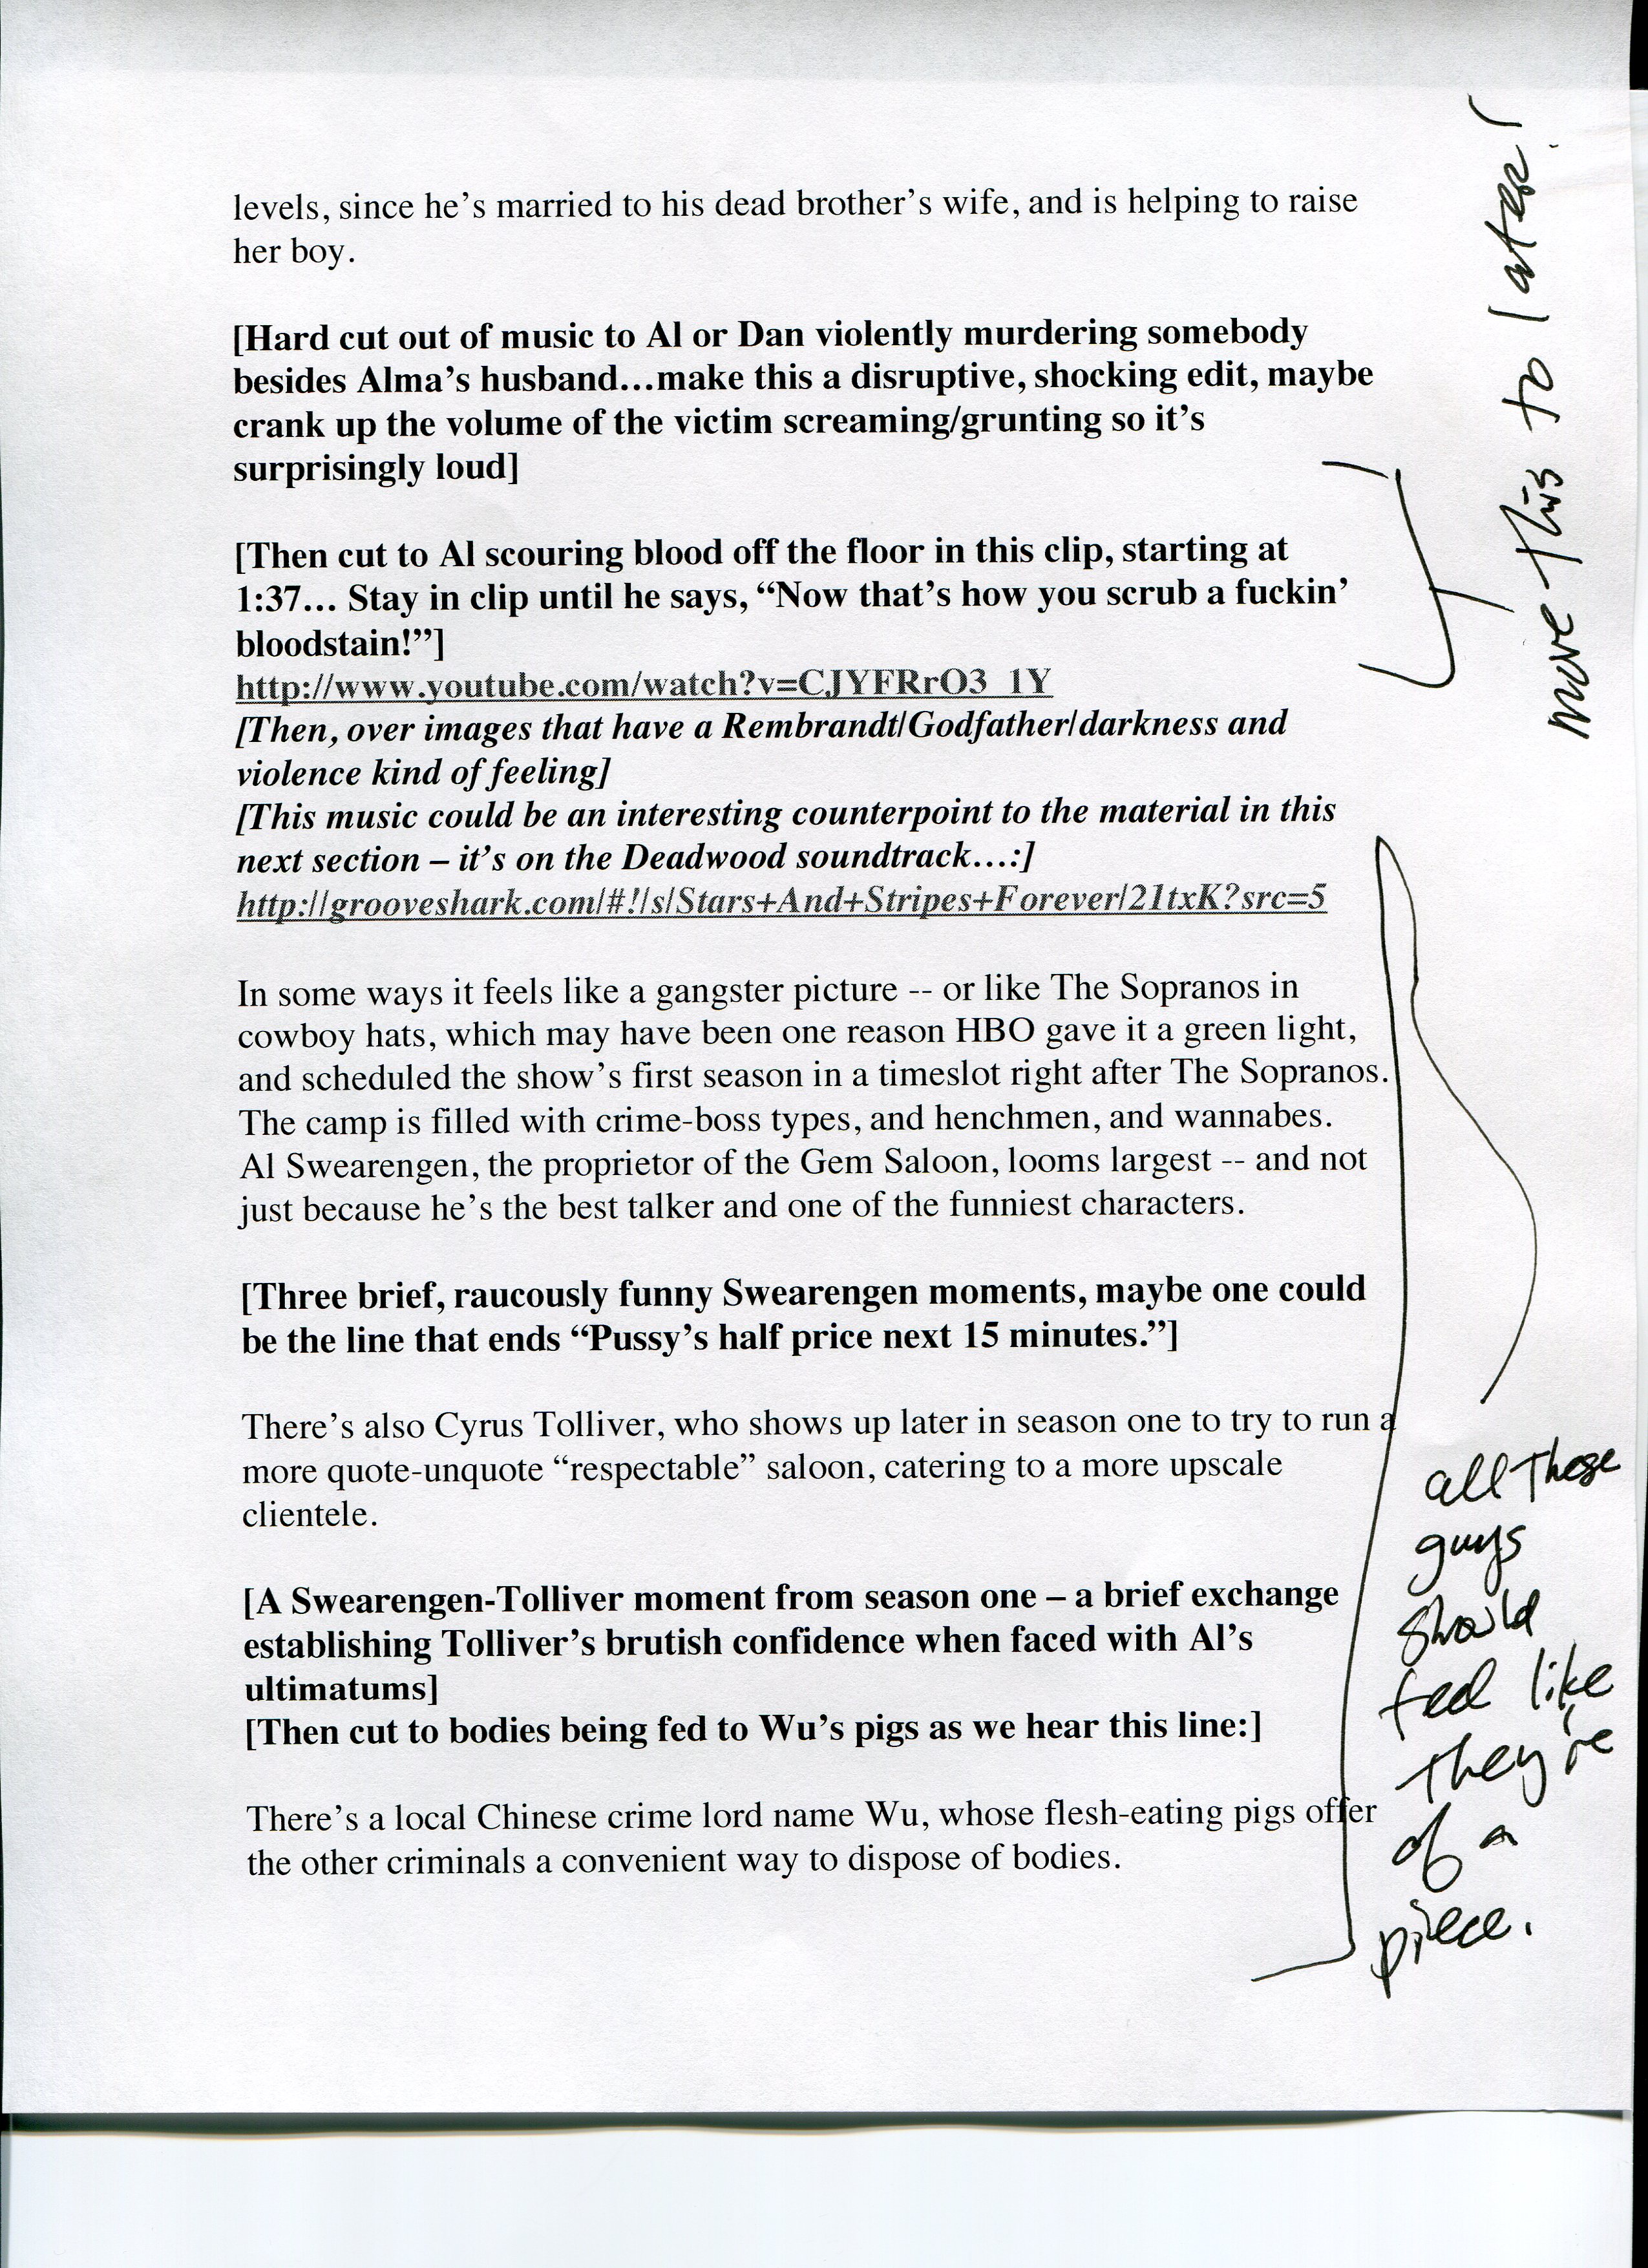 levels, since he's married to his dead brother's wife, and is helping to raise
her boy.
[Hard cut out of music to Al or Dan violently murdering somebody
besides Alma's husband…make this a disruptive, shocking edit, maybe
crank up the volume of the victim screaming/grunting so it's
surprisingly loud]
[Then cut to Al scouring blood off the floor in this clip, starting at
1:37… Stay in clip until he says, “Now that's how you scrub a fuckin'
bloodstain!”]
http://www.youtube.com/watch?v=CJYFRrO3_1Y
[Then, over images that have a Rembrandt/Godfather/darkness and
violence kind of feeling]
[This music could be an interesting counterpoint to the material in this
next section – it's on the Deadwood soundtrack…:]
http://grooveshark.com/#!/s/Stars+And+Stripes+Forever/21txK?src=5
In some ways it feels like a gangster picture -- or like The Sopranos in
cowboy hats, which may have been one reason HBO gave it a green light,
and scheduled the show's first season in a timeslot right after The Sopranos.
The camp is filled with crime-boss types, and henchmen, and wannabes.
Al Swearengen, the proprietor of the Gem Saloon, looms largest -- and not
just because he's the best talker and one of the funniest characters.
[Three brief, raucously funny Swearengen moments, maybe one could
be the line that ends “Pussy's half price next 15 minutes.”]
There's also Cyrus Tolliver, who shows up later in season one to try to run a
more quote-unquote “respectable” saloon, catering to a more upscale
clientele.
[A Swearengen-Tolliver moment from season one – a brief exchange
establishing Tolliver's brutish confidence when faced with Al's
ultimatums]
[Then cut to bodies being fed to Wu's pigs as we hear this line:]
There's a local Chinese crime lord name Wu, whose flesh-eating pigs offer
the other criminals a convenient way to dispose of bodies.
move this to later!
all these
guys
should
feel like
they're
of a
piece.